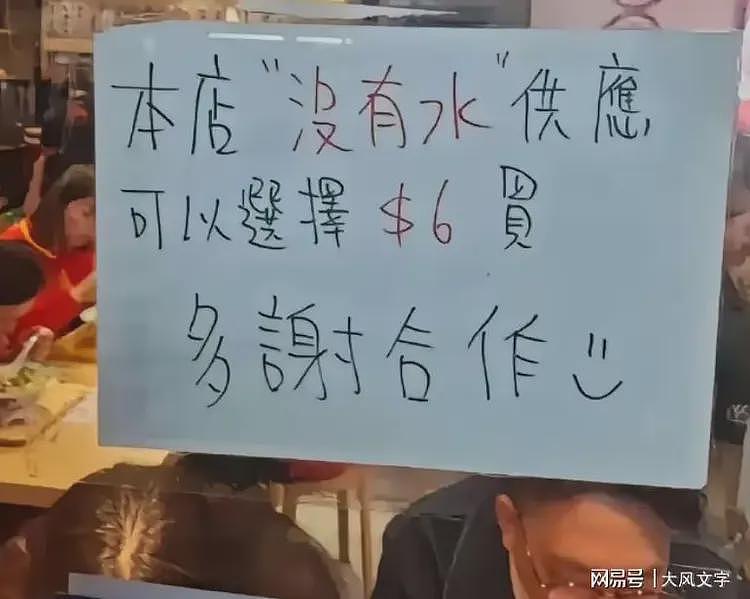 本店"没有水"供應
可以選擇 $6 買
多謝合作
网易号|大风文字